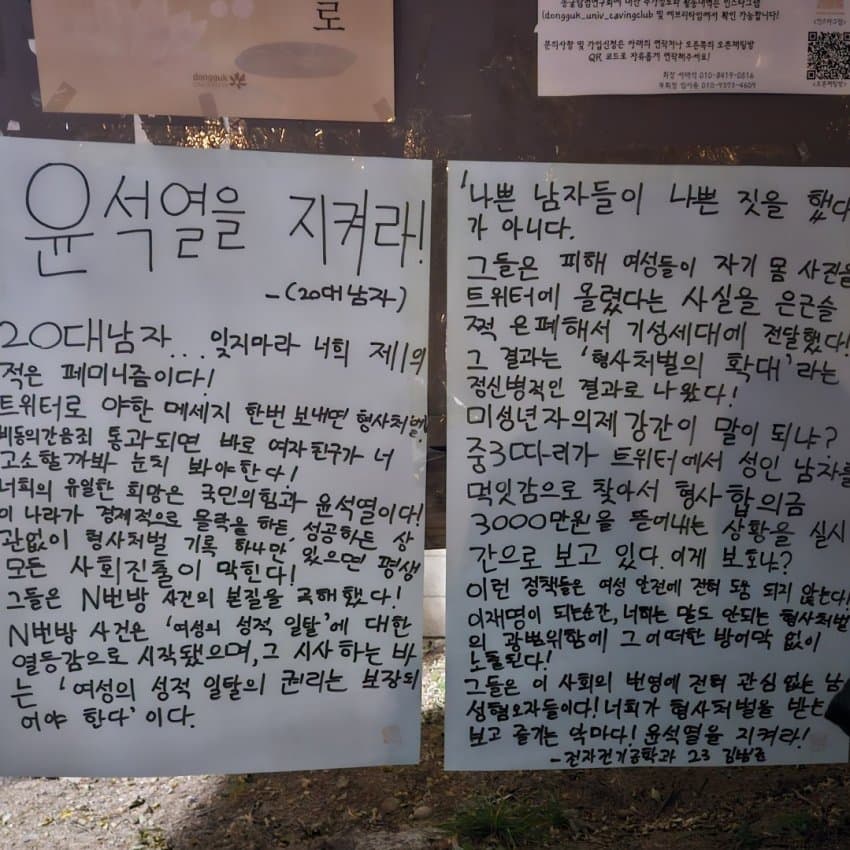 로
dongguk
동굴탐험연구회에 대한 추가정보와 활동내역은 인스타그램
(dongguk_univ_cavingclub 및 에브리타임에서 확인 가능합니다!
문의사항 및 가입신청은 아래의 연락처나 오픈톡의 오픈채팅방
QR 코드로 자유롭게 연락해주세요!
회장 010-8419-0816
부회장 010-9373-4609
<인스타그램>
<오픈채팅방>
윤석열을 지켜라!
-(20대 남자)
20대남자... 잊지마라 너희 제1의
적은 페미니즘이다!
트위터로 야한 메세지 한번 보내면 형사처벌!
비동의간음죄 통과되면 바로 여자친구가 너
고소할까봐 눈치 봐야한다!
너희의 유일한 희망은 국민의힘과 윤석열이다!
이 나라가 경제적으로 몰락을 하든, 성공하든 상
관없이 형사처벌 기록 하나만 있으면 평생
모든 사회진출이 막힌다!
그들은 N번방 사건의 본질을 곡해했다!
N번방 사건은 '여성의 성적 일탈'에 대한
열등감으로 시작됐으며, 그 시사 하는 바
는 '여성의 성적 일탈의 권리는 보장되
어야 한다'이다.
'나쁜 남자들이 나쁜 짓을 했다
가 아니다.
그들은 피해 여성들이 자기 몸 사진을
트위터에 올렸다는 사실을 은근슬
쩍 은폐해서 기성세대에 전달했다!
그 결과는 '형사처벌의 확대'라는
정신병적인 결과로 나왔다!
미성년자의제강간이 말이 되냐?
중3따리가 트위터에서 성인 남자를
먹잇감으로 찾아서 형사 합의금
3000만원을 뜯어내는 상황을 실시
간으로 보고 있다. 이게 보호냐?
이런 정책들은 여성 안전에 전혀 도움 되지 않는다!
이재명이 되는순간, 너희는 말도 안되는 형사처벌
의 광범위함에 그 어떠한 방어막 없이
노출된다!
그들은 이 사회의 번영에 전혀 관심 없는 남
성혐오자들이다! 너희가 형사처벌을 받는
보고 즐기는 악마다! 윤석열을 지켜라!
-전자전기공학과 23